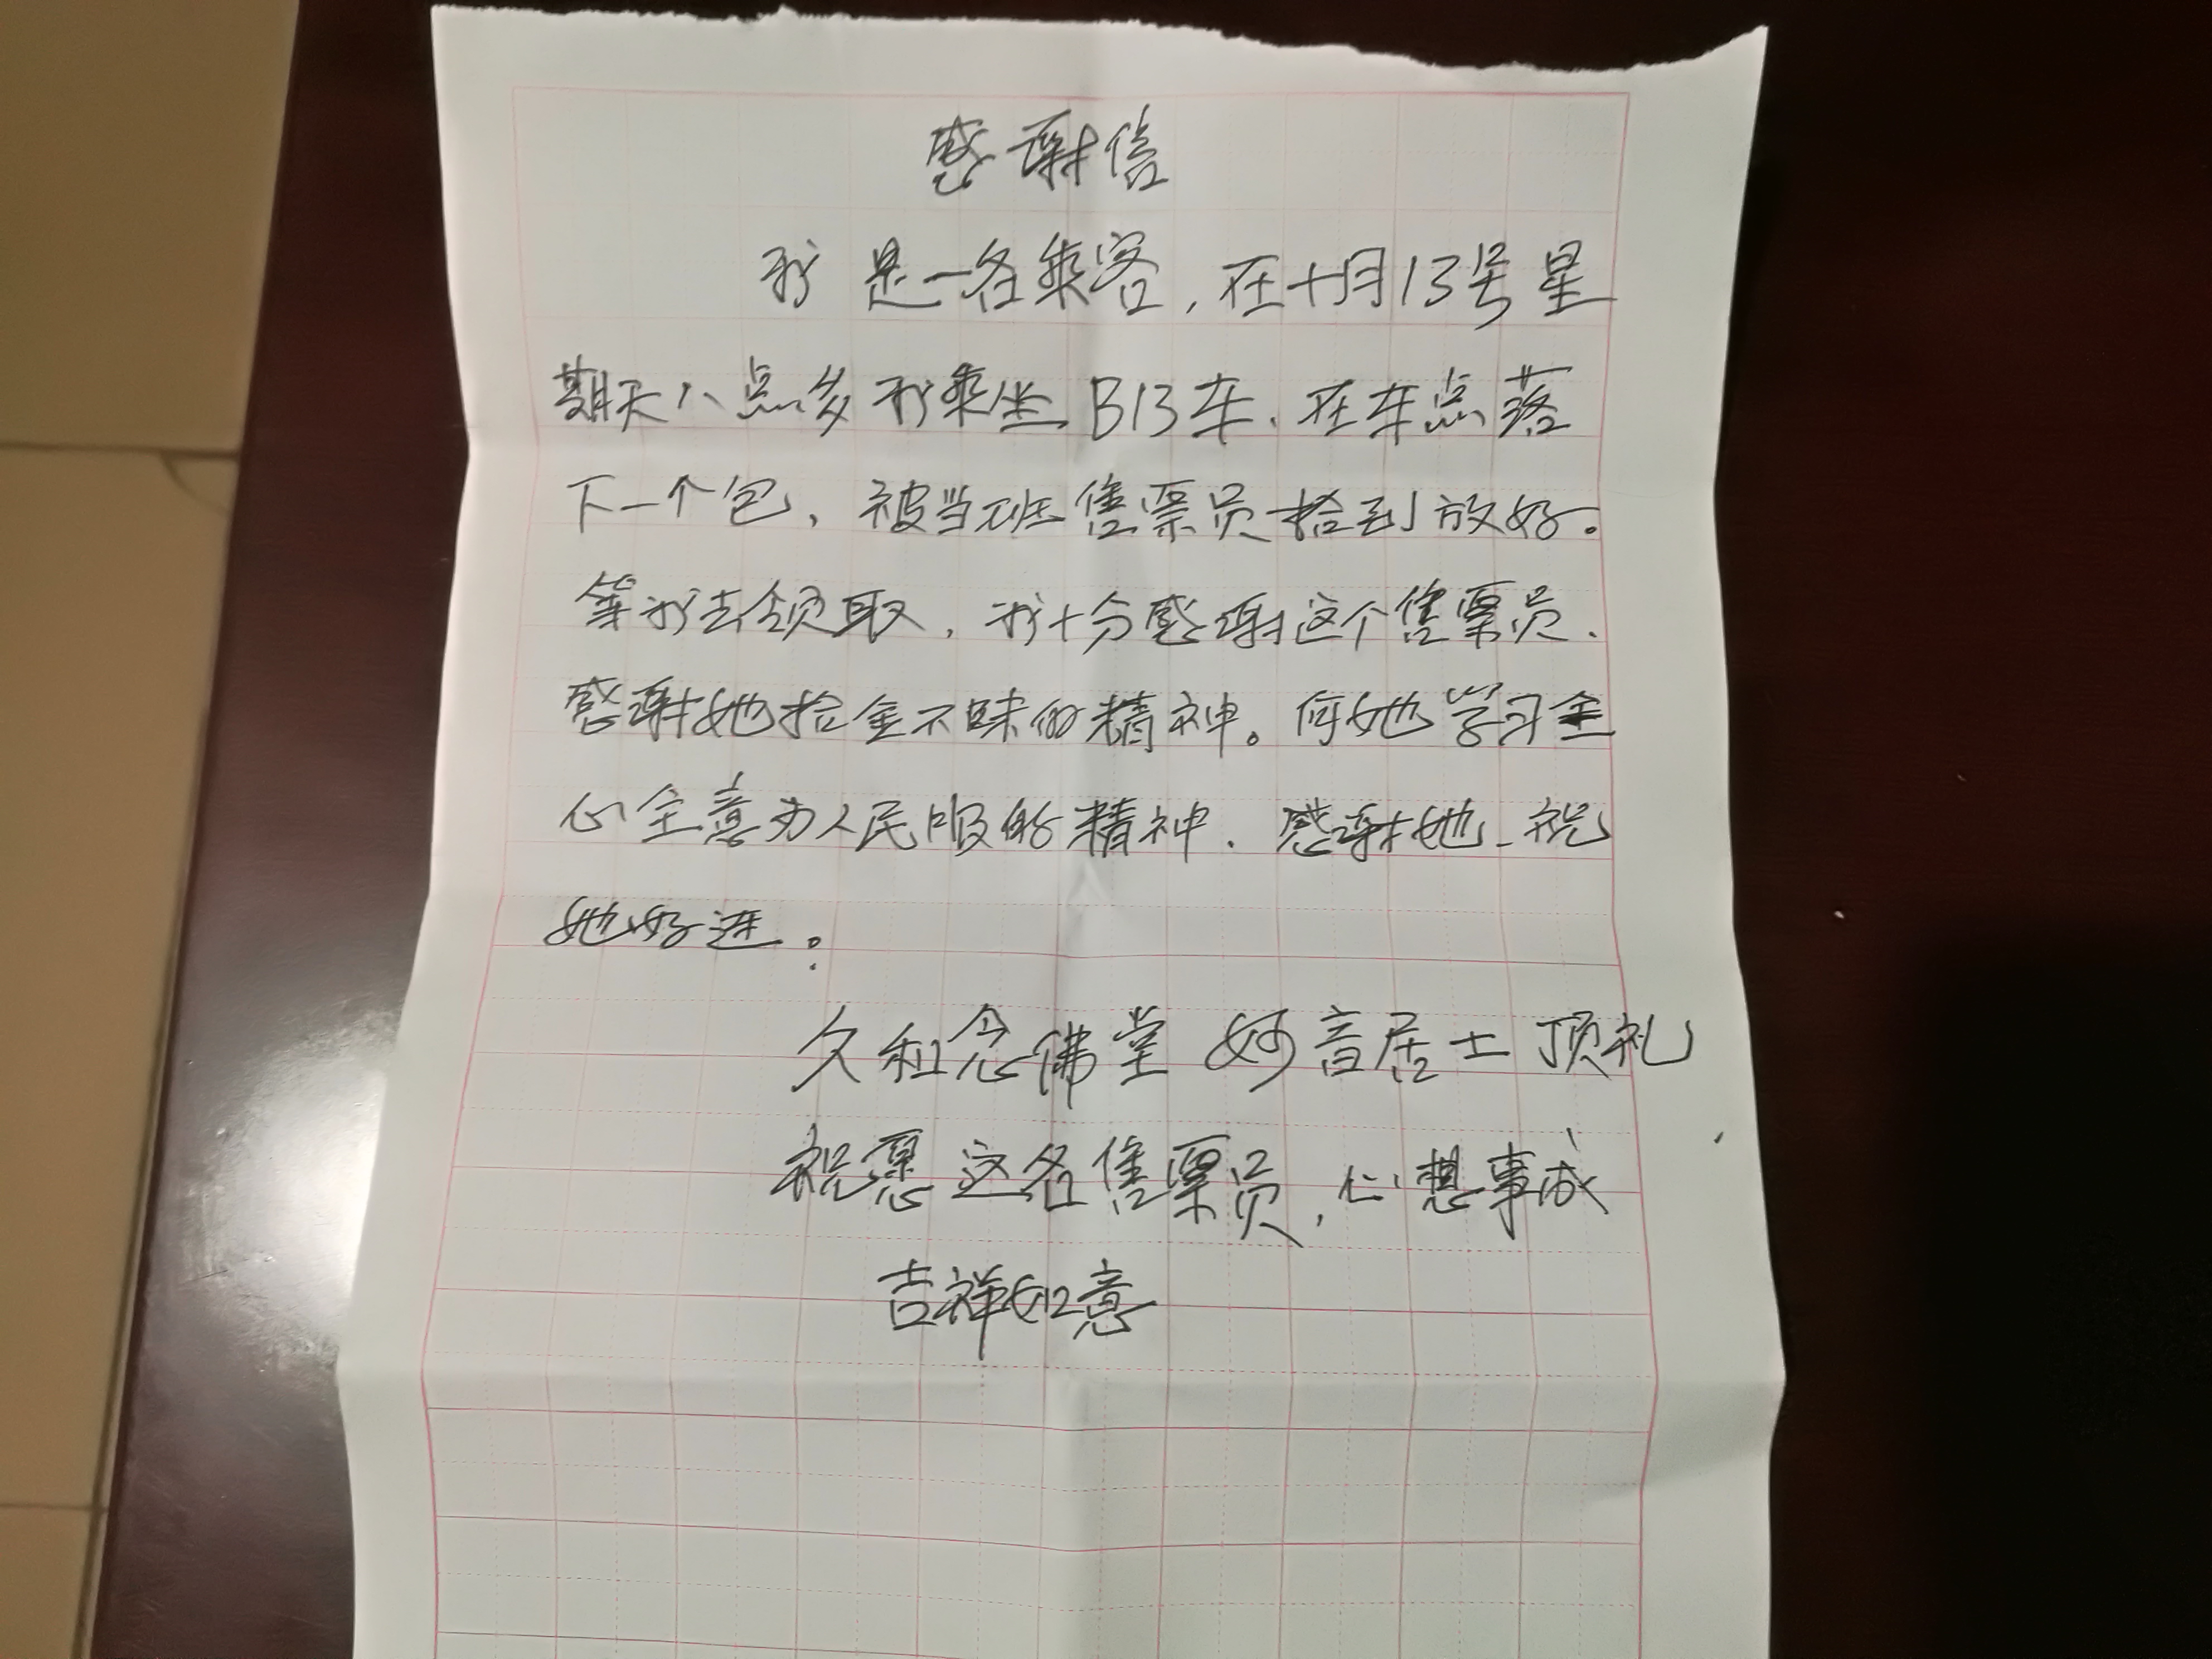 感谢信
我是一名乘客,在十月13号星
期天八点多我乘坐B13车、在车点落
下一个包、被当班售票员拾到放好。
等我去领取,我十分感谢这个售票员、
感谢她拾金不昧的精神。向她学习全
心主意为人民服的精神.感谢她、祝
她好进:
久和念佛堂 妙音居士顶礼
祝愿这名售票员,心想事成
吉祥如意